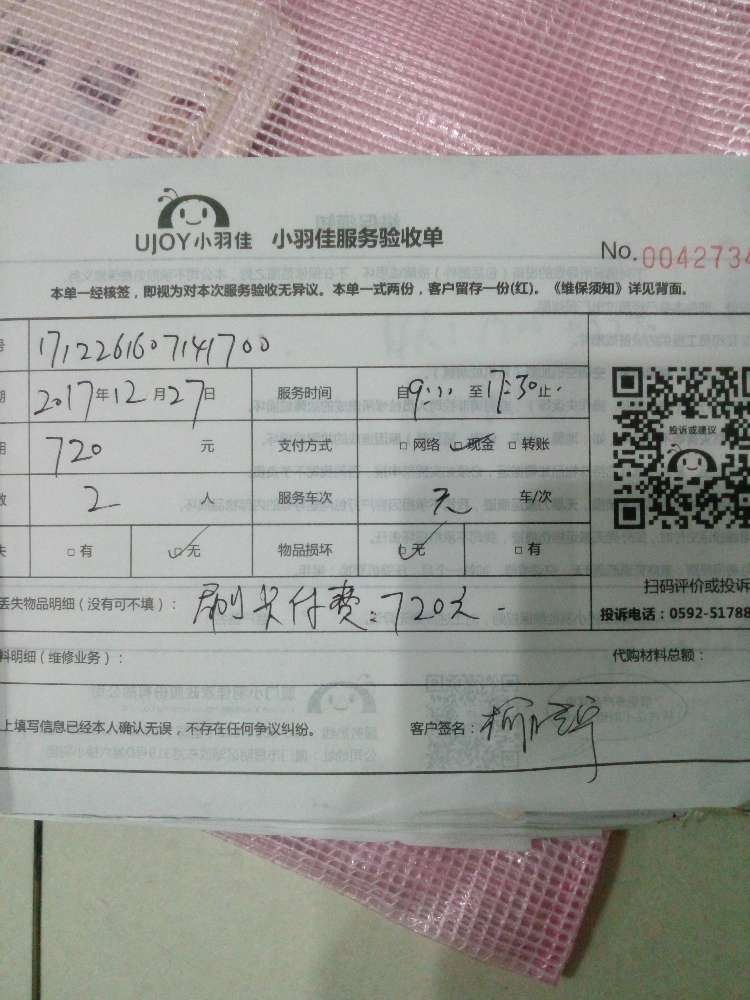 UJOY小羽佳 小羽佳服务验收单
No.0042734
本单一经核签，即视为对本次服务验收无异议。本单一式两份，客户留存一份(红)。《维保须知》详见背面。
号 1712261607141700
期 2017年12月27日 服务时间 自9: 至17:30止.
用 720 元 支付方式 □网络 □现金 □转账
数 2 人 服务车次 无 车/次
失 □有 □无 物品损坏 □无 □有
投诉或建议
扫码评价或投诉
丢失物品明细（没有可不填）： 刷卡付费：720元
投诉电话：0592-51788
料明细（维修业务）： 代购材料总额：
上填写信息已经本人确认无误，不存在任何争议纠纷。 客户签名：